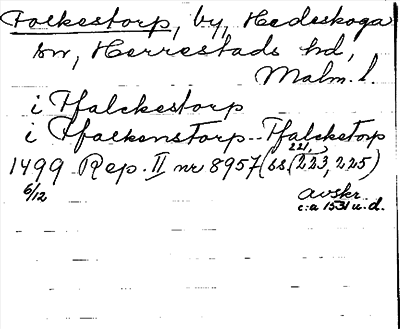 Folkestorp, by, Hedeskoga
sn, Herrestads hd,
Malm. l.
i Ffalckestorp
i Ffalkenstorp -- Ffalcketorp
1499 Rep. II nr 8957 (ss. 221, 223, 225)
6/12 avskr.
c:a 1531 u.d.